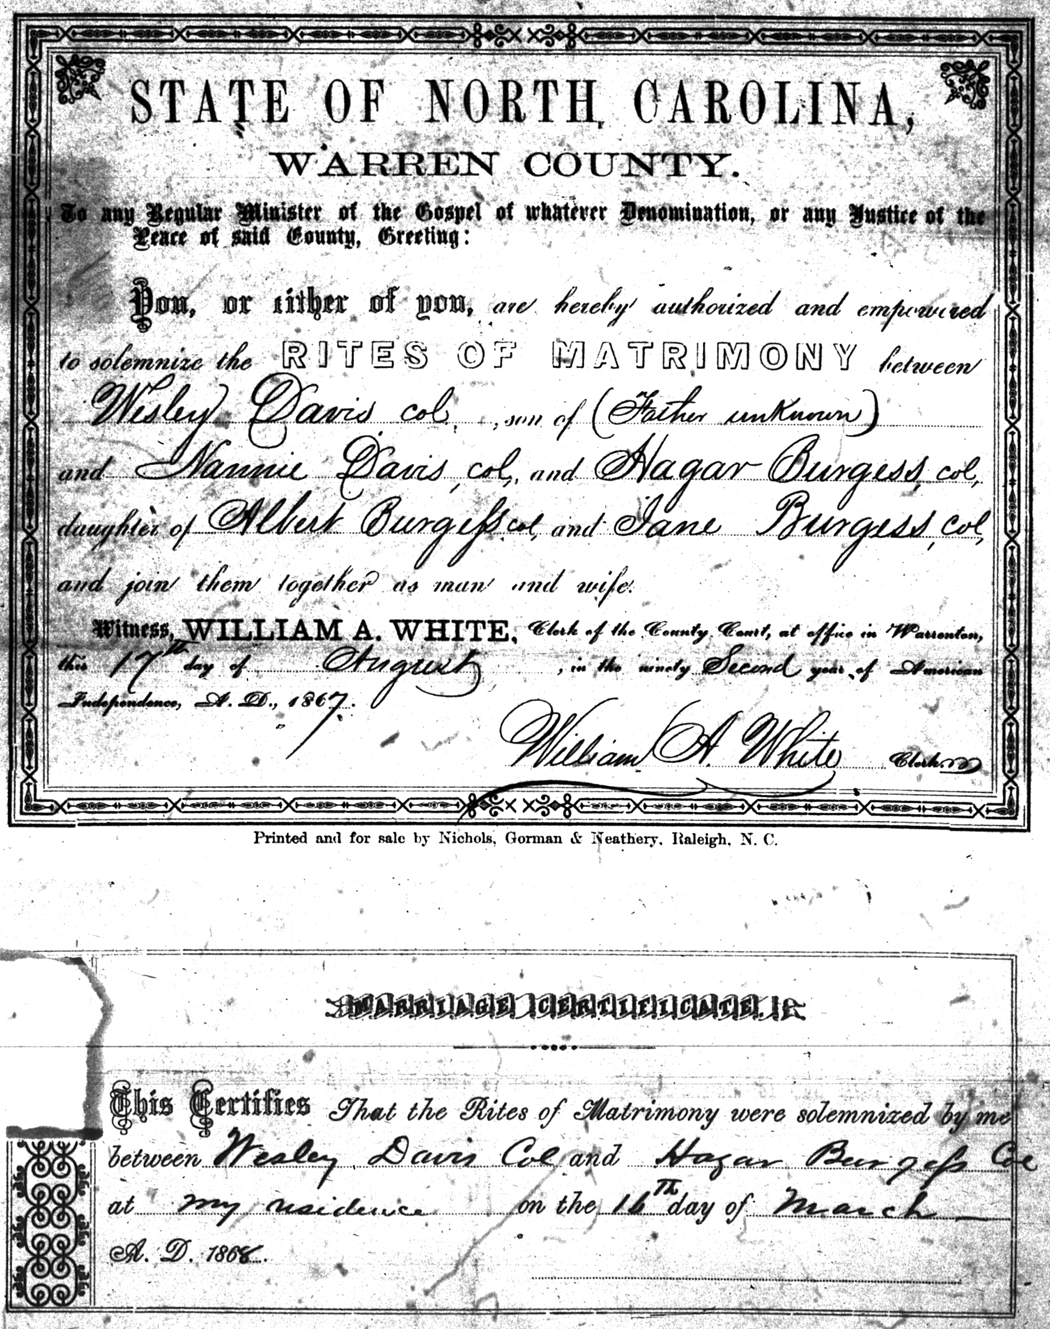 STATE OF NORTH CAROLINA,
WARREN COUNTY.
To any Regular Minister of the Gospel of whatever Denomination, or any Justice of the
Peace of said County, Greeting:
You, or either of you, are hereby authorized and empowered
to solemnize the RITES OF MATRIMONY between
Wesley Davis col, , son of (Father unknown)
and Nannie Davis, col, and Hagar Burgess, col,
daughter of Albert Burgess col, and Jane Burgess, col,
and join them together as man and wife.
Witness, WILLIAM A. WHITE, Clerk of the County Court, at office in Warrenton,
this 17th day of August , in the ninety Second year of American
Independence, A. D., 1867.
William A White Clerk
Printed and for sale by Nichols, Gorman & Neathery, Raleigh, N. C.
MARRIAGE CERTIFICATE.
This Certifies That the Rites of Matrimony were solemnized by me
between Wesley Davis Col and Hagar Burgess Col
at my residence on the 16th day of March
A. D. 1868.